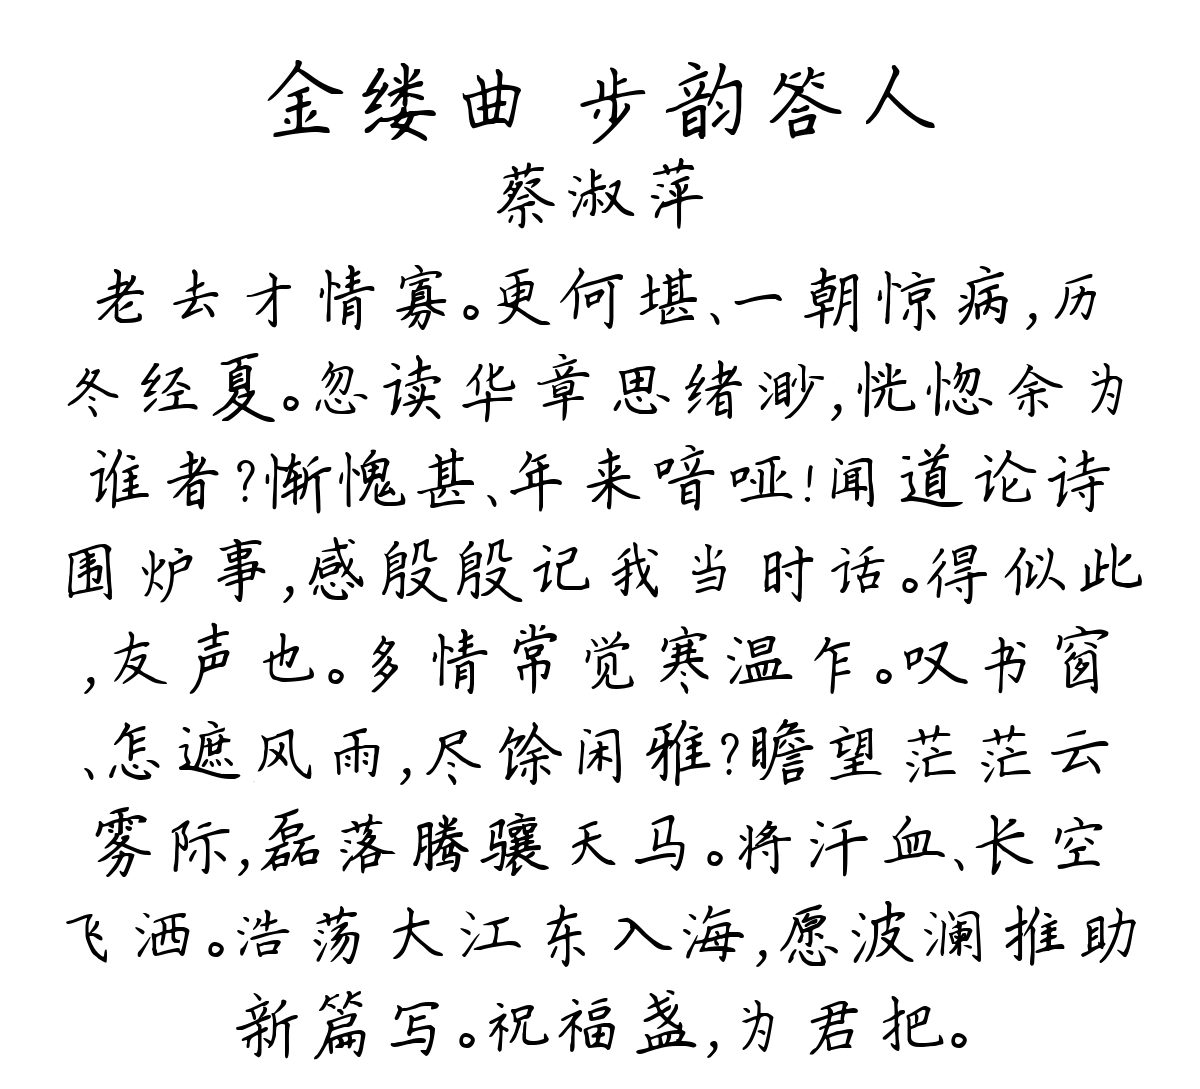 金缕曲 步韵答人
蔡淑萍
老去才情寡。更何堪、一朝惊病,历
冬经夏。忽读华章思绪渺,恍惚余为
谁者?惭愧甚、年来喑哑!闻道论诗
围炉事,感殷殷记我当时话。得似此
,友声也。多情常觉寒温乍。叹书窗
、怎遮风雨,尽馀闲雅?瞻望茫茫云
雾际,磊落腾骧天马。将汗血、长空
飞洒。浩荡大江东入海,愿波澜推助
新篇写。祝福盏,为君把。